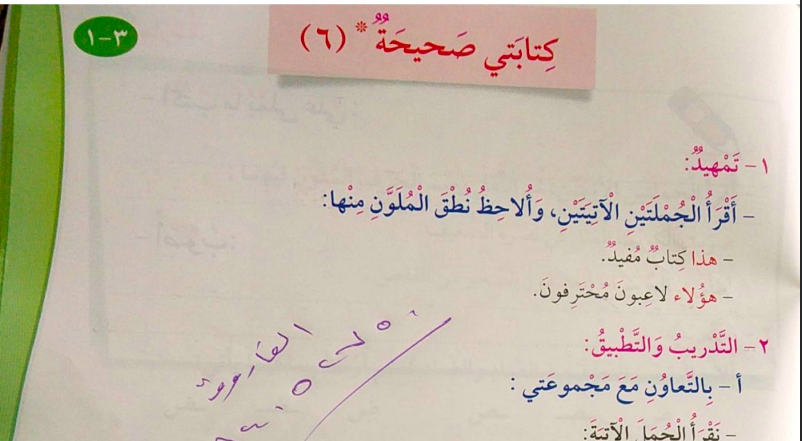 ٣-١
كِتابَتي صَحيحَةٌ * (٦)
١- تَمْهيدٌ:
- أَقْرَأُ الْجُمْلَتَيْنِ الْآتِيَتَيْنِ، وَأُلاحِظُ نُطْقَ الْمُلَوَّنِ مِنْها:
- هذا كِتابٌ مُفيدٌ.
- هؤُلاء لاعِبونَ مُحْتَرِفونَ.
٢- التَّدْريبُ وَالتَّطْبيقُ:
أ- بِالتَّعاوُنِ مَعَ مَجْموعَتي :
- نَقْرَأُ الْجُمَلَ الْآتِيَةَ: